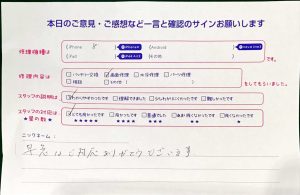 本日のご意見・ご感想など一言と確認のサインお願いします
修理機種は
iPhone 8
Android
iPad
その他
修理内容は
バッテリー交換 画面修理 水没修理 パーツ修理
その他
をしてもらいました。
スタッフの説明は
わかりやすかったです 理解できました 少しわかりにくかったです 難しかったです
スタッフの対応は
★星の数★
とても良かったです 良かったです 普通でした
ニックネーム:
早急なご対応ありがとうございます